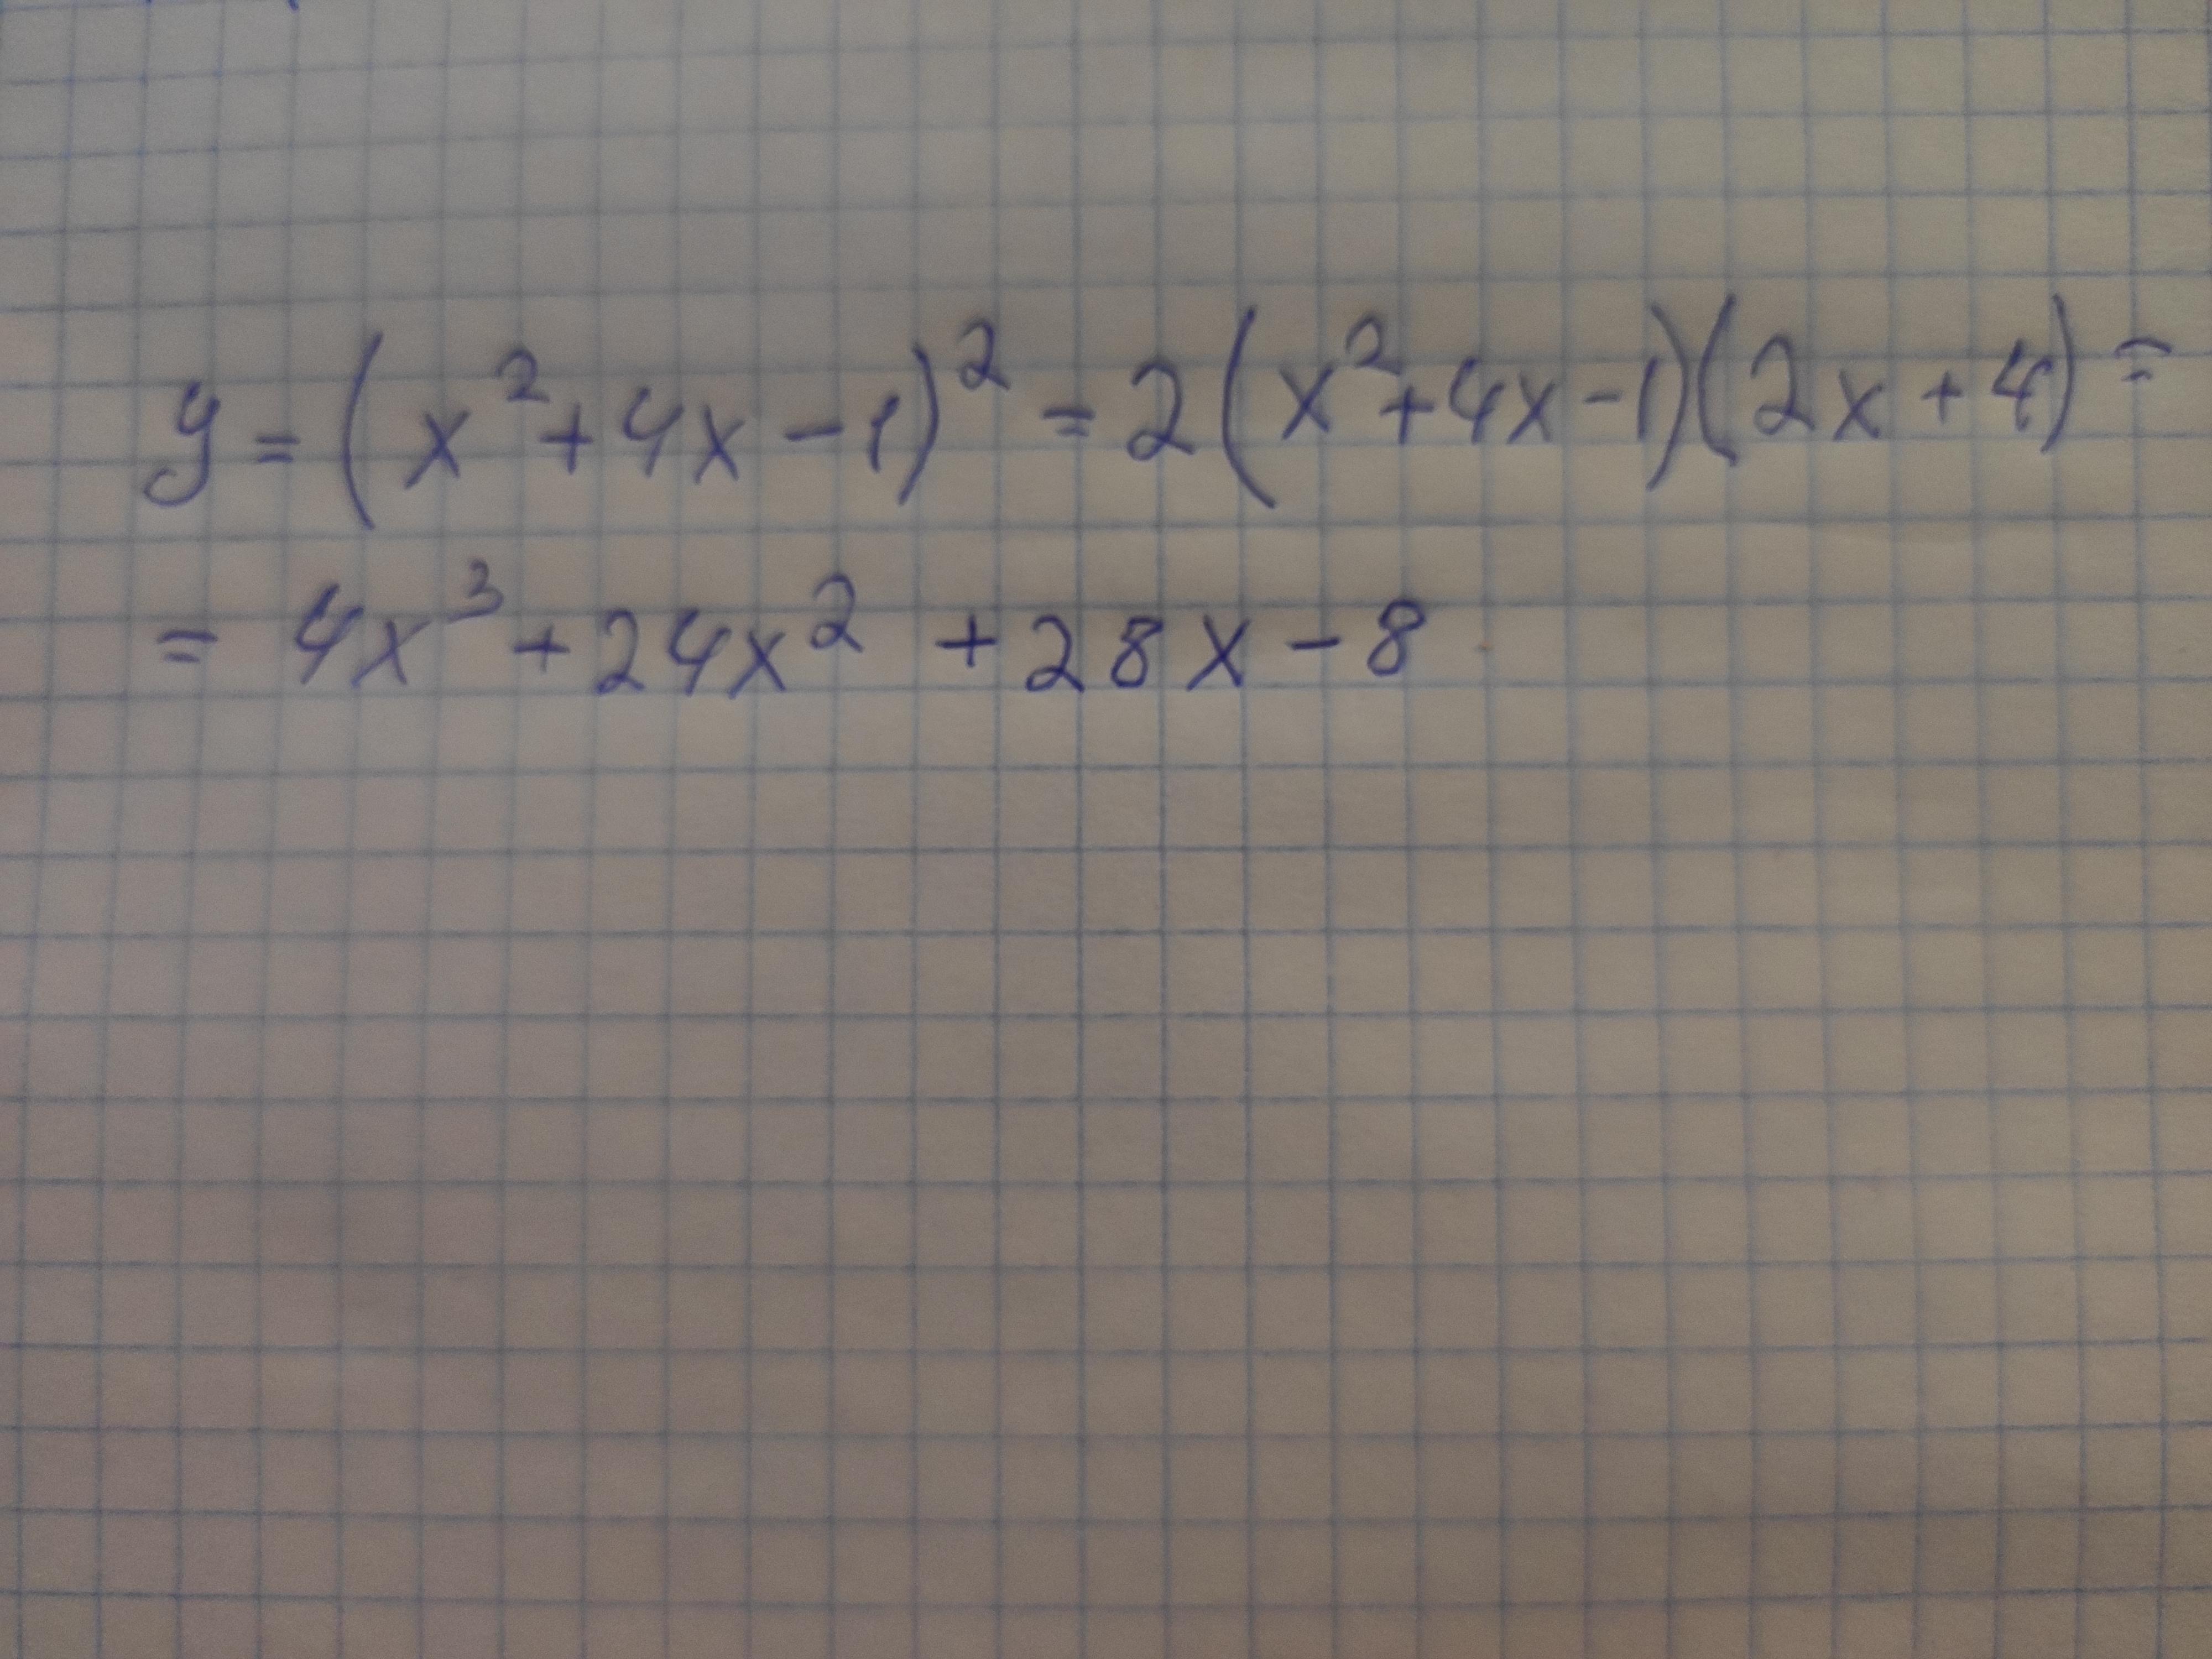 y = (x² + 4x - 1)² = 2(x² + 4x - 1)(2x + 4) =
= 4x³ + 24x² + 28x - 8